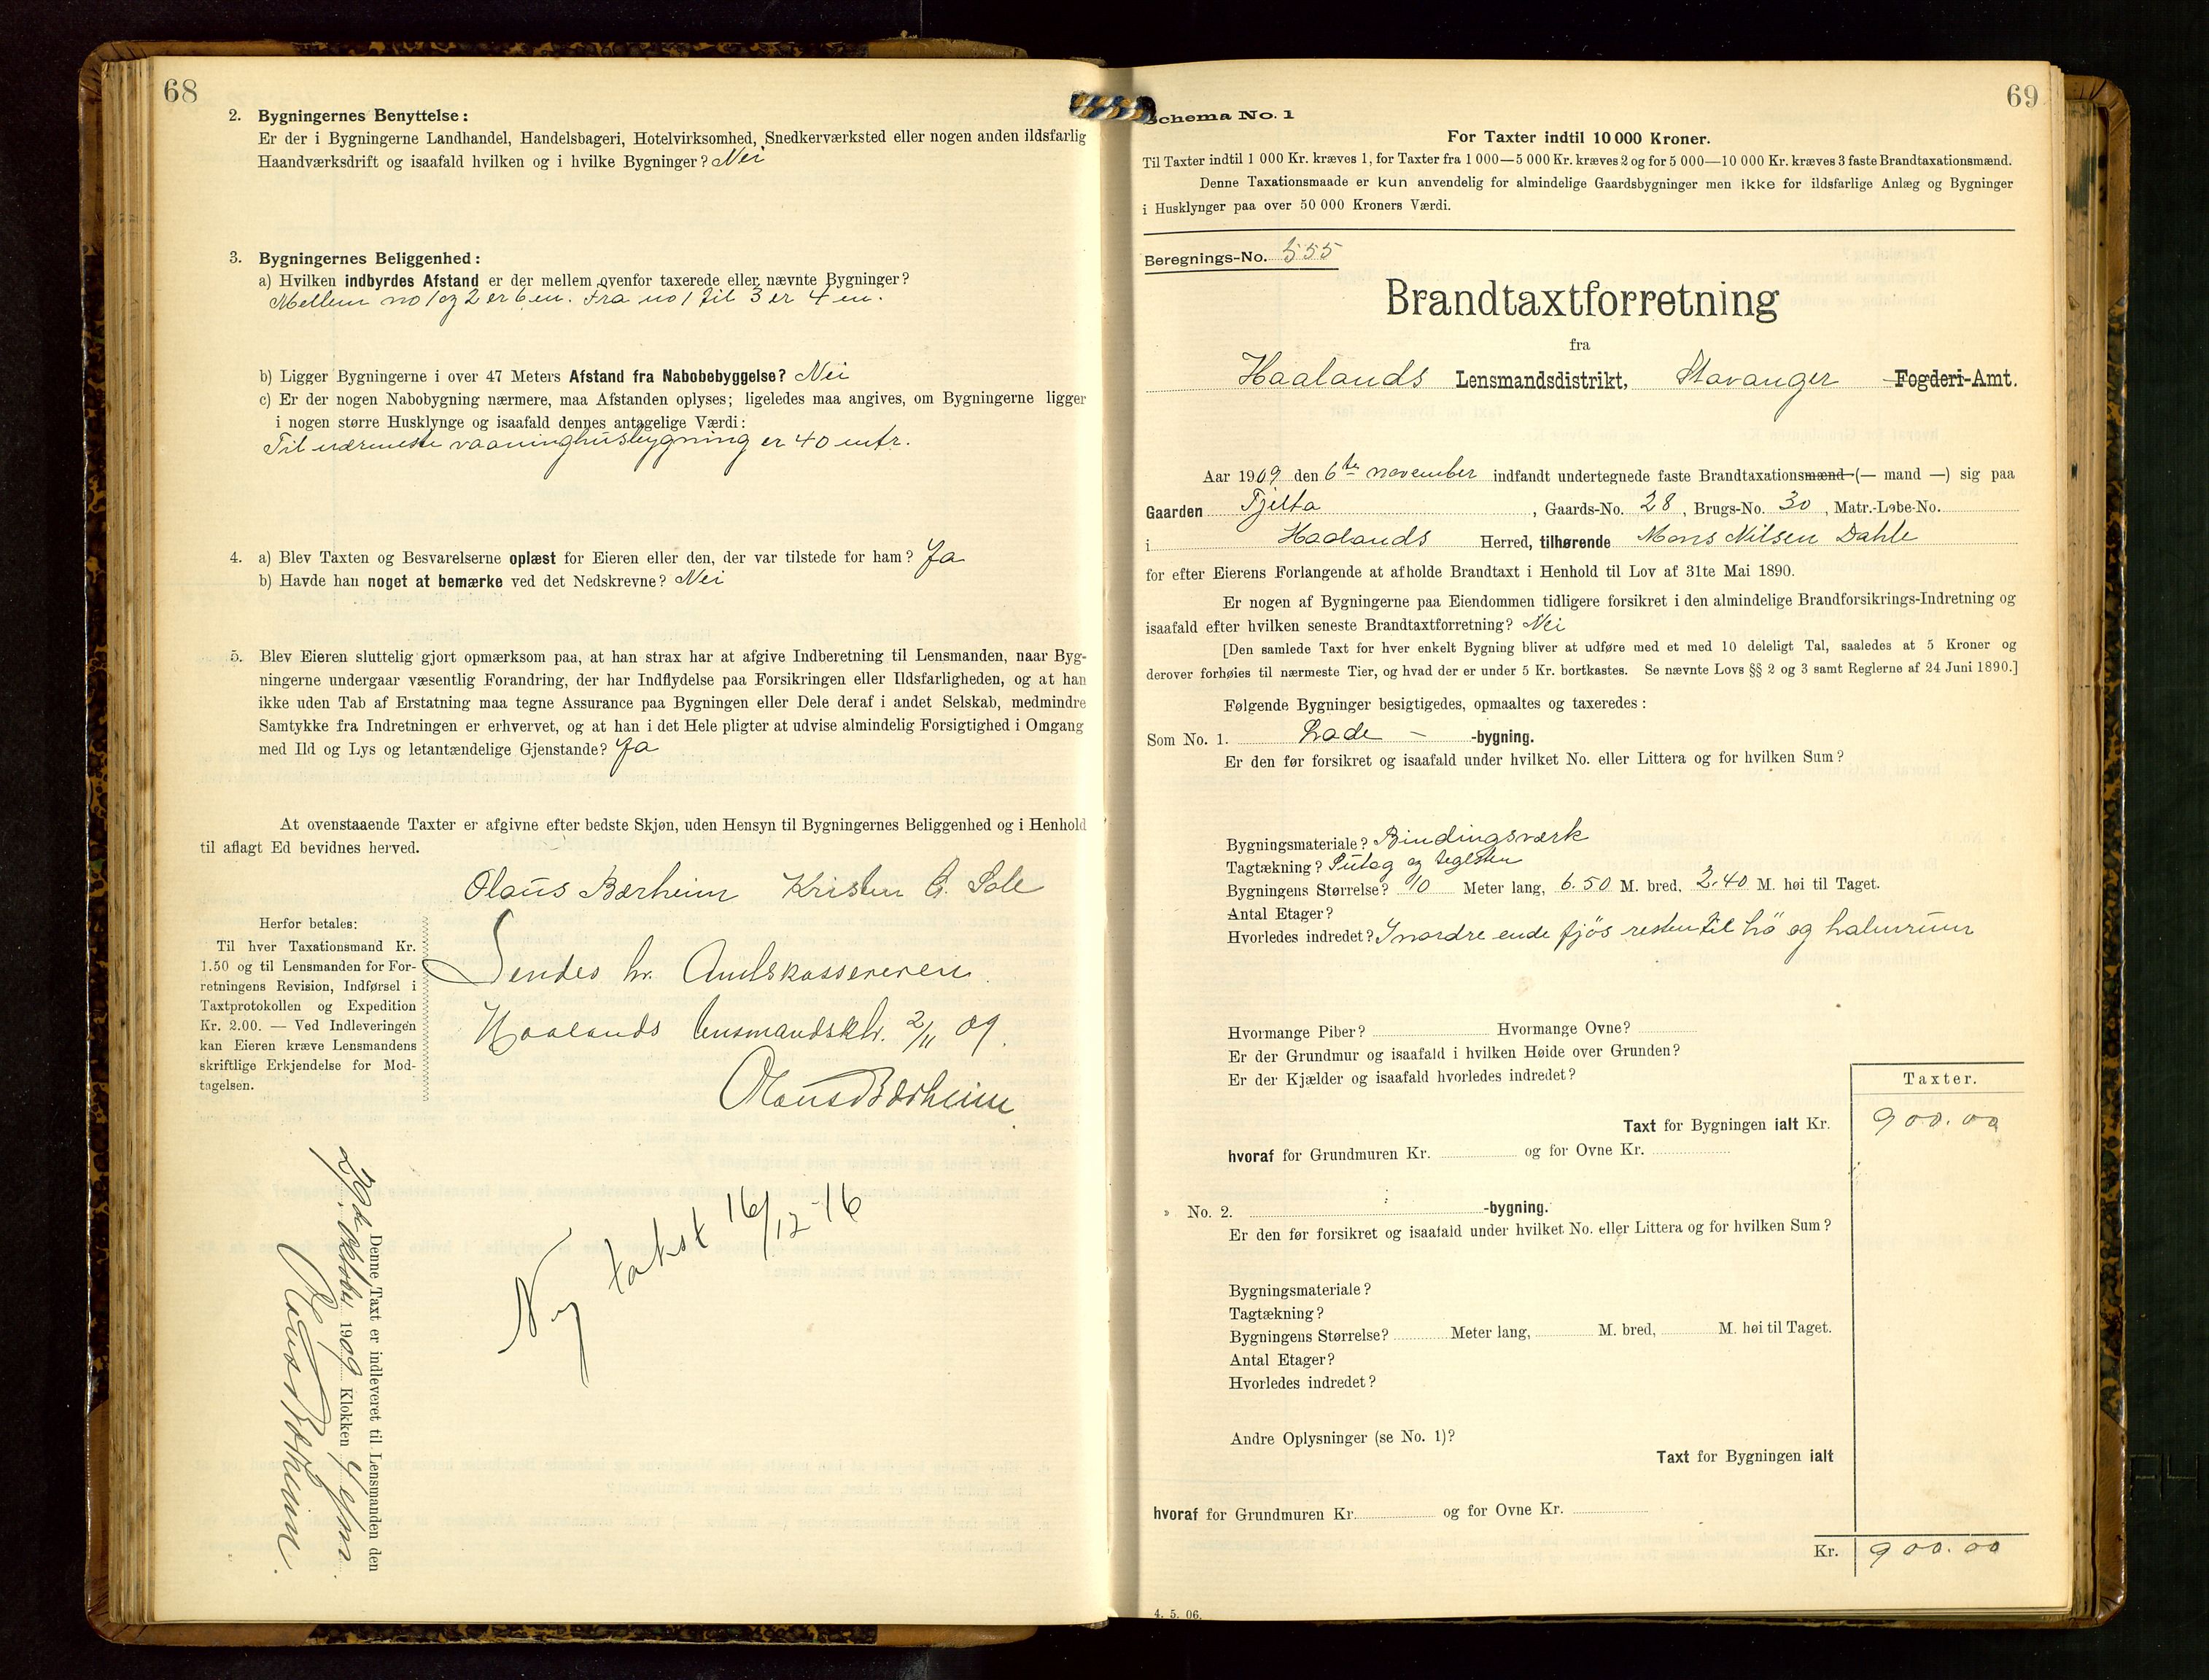 68
2. Bygningernes Benyttelse:
Er der i Bygningerne Landhandel, Handelsbageri, Hotelvirksomhed, Snedkerværksted eller nogen anden ildsfarlig
Haandværksdrift og isaafald hvilken og i hvilke Bygninger? Nei
3. Bygningernes Beliggenhed:
a) Hvilken indbyrdes Afstand er der mellem ovenfor taxerede eller nævnte Bygninger?
Mellem no 1 og 2 er 6 m. Fra no 1 til 3 er 4 m.
b) Ligger Bygningerne i over 47 Meters Afstand fra Nabobebyggelse? Nei
c) Er der nogen Nabobygning nærmere, maa Afstanden oplyses; ligeledes maa angives, om Bygningerne ligger
i nogen større Husklynge og isaafald dennes antagelige Værdi:
Til nærmeste vaaninghusbygning er 40 mtr.
4. a) Blev Taxten og Besvarelserne oplæst for Eieren eller den, der var tilstede for ham? Ja
b) Havde han noget at bemærke ved det Nedskrevne? Nei
5. Blev Eieren sluttelig gjort opmærksom paa, at han strax har at afgive Indberetning til Lensmanden, naar Byg-
ningerne undergaar væsentlig Forandring, der har Indflydelse paa Forsikringen eller Ildsfarligheden, og at han
ikke uden Tab af Erstatning maa tegne Assurance paa Bygningen eller Dele deraf i andet Selskab, medmindre
Samtykke fra Indretningen er erhvervet, og at han i det Hele pligter at udvise almindelig Forsigtighed i Omgang
med Ild og Lys og letantændelige Gjenstande? Ja
At ovenstaaende Taxter er afgivne efter bedste Skjøn, uden Hensyn til Bygningernes Beliggenhed og i Henhold
til aflagt Ed bevidnes herved.
Olaus Bærheim Kristen G. Sole
Herfor betales:
Til hver Taxationsmand Kr.
1.50 og til Lensmanden for For-
retningens Revision, Indførsel i
Taxtprotokollen og Expedition
Kr. 2.00. — Ved Indleveringen
kan Eieren kræve Lensmandens
skriftlige Erkjendelse for Mod-
tagelsen.
Sendes hr. Amtskassereren
Haalands lensmandsktr. 2/11 09.
Olaus Bærheim
Denne Taxt er indleveret til Lensmanden den
oktober 1909 Klokken 4 efm.
Olaus Bærheim.
Ny takst 16/12-16
69
Schema No. 1
For Taxter indtil 10 000 Kroner.
Til Taxter indtil 1 000 Kr. kræves 1, for Taxter fra 1 000—5 000 Kr. kræves 2 og for 5 000—10 000 Kr. kræves 3 faste Brandtaxationsmænd.
Denne Taxationsmaade er kun anvendelig for almindelige Gaardsbygninger men ikke for ildsfarlige Anlæg og Bygninger
i Husklynger paa over 50 000 Kroners Værdi.
Beregnings-No. 555
Brandtaxtforretning
fra
Haalands Lensmandsdistrikt, Stavanger Fogderi-Amt.
Aar 1909 den 6te november indfandt undertegnede faste Brandtaxationsmænd (— mand —) sig paa
Gaarden Tjelta, Gaards-No. 28, Brugs-No. 30, Matr.-Løbe-No.
i Haalands Herred, tilhørende Mons Nilsen Dahle
for efter Eierens Forlangende at afholde Brandtaxt i Henhold til Lov af 31te Mai 1890.
Er nogen af Bygningerne paa Eiendommen tidligere forsikret i den almindelige Brandforsikrings-Indretning og
isaafald efter hvilken seneste Brandtaxtforretning? Nei
[Den samlede Taxt for hver enkelt Bygning bliver at udføre med et med 10 deleligt Tal, saaledes at 5 Kroner og
derover forhøies til nærmeste Tier, og hvad der er under 5 Kr. bortkastes. Se nævnte Lovs §§ 2 og 3 samt Reglerne af 24 Juni 1890.]
Følgende Bygninger besigtigedes, opmaaltes og taxeredes:
Som No. 1. Lade - -bygning.
Er den før forsikret og isaafald under hvilket No. eller Littera og for hvilken Sum?
Bygningsmateriale? Bindingsværk
Tagtækning? Sutag og teglsten
Bygningens Størrelse? 10 Meter lang, 6.50 M. bred, 2.40 M. høi til Taget.
Antal Etager?
Hvorledes indredet? I nordre ende fjøs resten til hø og halmrum
Hvormange Piber? Hvormange Ovne?
Er der Grundmur og isaafald i hvilken Høide over Grunden?
Er der Kjælder og isaafald hvorledes indredet?
Taxter.
Taxt for Bygningen ialt Kr. 900.00
hvoraf for Grundmuren Kr. og for Ovne Kr.
» No. 2. -bygning.
Er den før forsikret og isaafald under hvilket No. eller Littera og for hvilken Sum?
Bygningsmateriale?
Tagtækning?
Bygningens Størrelse? Meter lang, M. bred, M. høi til Taget.
Antal Etager?
Hvorledes indredet?
Andre Oplysninger (se No. 1)?
Taxt for Bygningen ialt
hvoraf for Grundmuren Kr. og for Ovne Kr.
Kr. 900.00
4. 5. 06.